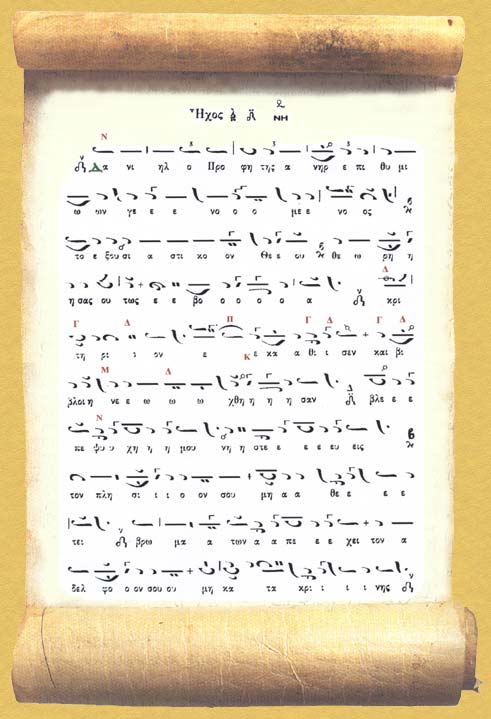 Ἦχος λ δ̈ νη
Ν
Δα νι ηλ ο Προ φη της α νηρ ε πι θυ μι
ω ων γε ε ε νο ο ο με ε νο ος
το ε ξου σι α στι κο ον Θε ε ου θε ω ρη η
Δ
η σας ου τως ε ε βο ο ο ο ο α κρι
Γ Δ Π Γ Δ Γ Δ
τη ρι ι ον ε ε κα α θι ι σεν και βι
Κ
Μ Δ
βλοι η νε ε ω ω ω χθη η η η σαν βλε ε ε
Ν
πε ψυ υ χη η η μου νη η στε ε ε ε ευ εις
τον πλη σι ι ι ο ον σου μη α α θε ε ε ε
τει βρω μα α των α α πε ε ε χει τον α
δελ φο ο ον σου ου μη κα τα κρι ι ι ι νης